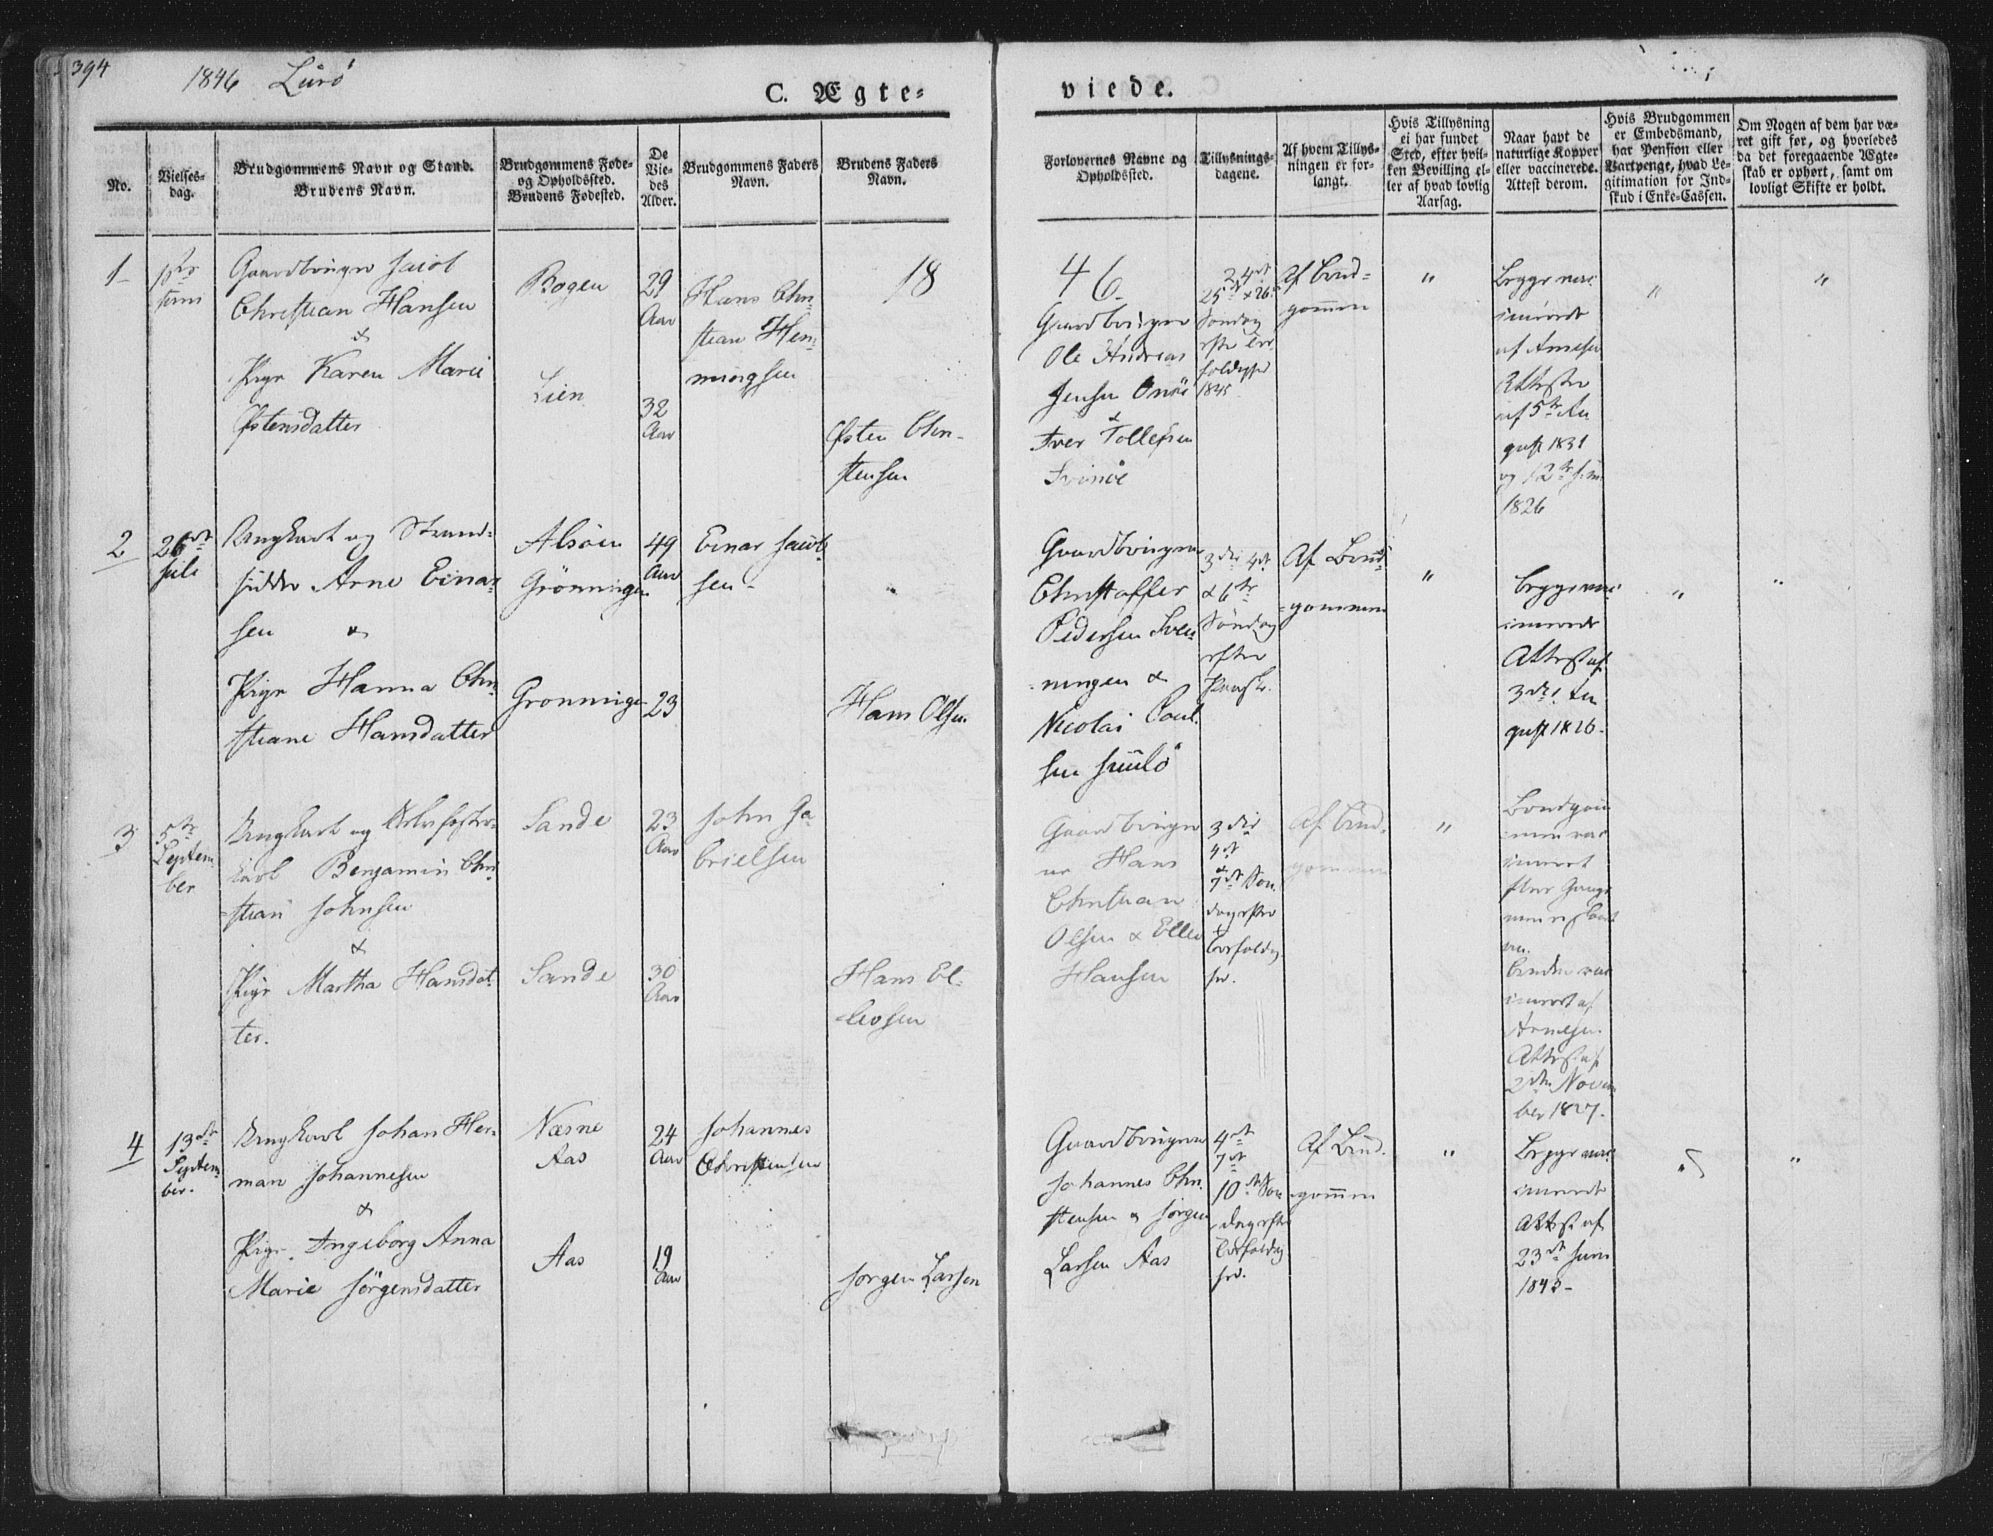 394
1846 Lurö
C. Ægte-
viede.
No.
Vielses-
dag.
Brudgommens Navn og Stand.
Brudens Navn.
Brudgommens Føde-
og Opholdssted.
Brudens Fødested.
De
Vie-
des
Alder.
Brudgommens Faders
Navn.
Brudens Faders
Navn.
Forlovernes Navne og
Opholdssted.
Tillysnings-
dagene.
Af hvem Tillys-
ningen er for-
langt.
Hvis Tillysning
ei har fundet
Sted, efter hvil-
ken Bevilling el-
ler af hvad lovlig
Aarsag.
Naar havt de
naturlige Kopper
eller vaccinerede.
Attest derom.
Hvis Brudgommen
er Embedsmand,
har Pension eller
Vartpenge, hvad Le-
gitimation for Ind-
skud i Enke-Cassen.
Om Nogen af dem har væ-
ret gift før, og hvorledes
da det foregaaende Ægte-
skab er ophørt, samt om
lovligt Skifte er holdt.
18
46
1
Gaardbruger Jacob
Christian Hansen
&
Pige Karen Marie
Østensdatter
Bogen
Lien
29
Aar
32
Aar
Hans Chri-
stian Hen-
ningsen
Østen Chri-
stensen
Gaardbruger
Ole Andreas
Jensen
&
Iver Tollefsen
Svinöe
24de
25de & 26
Søndag
efter
1845
Af Brud-
gommen
"
Begge vac-
cinerede
af Arnesen
Attester
af 5te Au-
gust 1831
og 12te
1826
"
"
2
26de
Juli
Ungkarl og Strand-
sidder Arne Einar-
sen &
Pige Hanna Chri-
stiane Hansdatter
Alsöen
Grönningen
Gronninge
49
Aar
23
Einar Jacob-
sen
"
Hans Olsen
Gaardbrugerne
Christoffer
Pedersen
ningen &
Nicolai Poul-
sen
3die 4de
& 6te
Søndag
efter
Paaske.
Af Brud-
gommen
"
Begge vac-
cinerede
Attest af
3die Au-
gust 1826.
"
"
3
5te
Septem
ber
Ungkarl og
karl Benjamin Chri-
stian Johnsen
&
Pige Martha Hansdat-
ter.
Sande
Sande
23
Aar
30
Aar
John Ga-
brielsen
Hans El-
levsen
Gaardbruger
ne Hans
Christian
Olsen & Ellev
Hansen
3die
4de
&
7de Søn-
dag efter
Af Brud-
gommen
"
Brudgom-
men vac-
cineret
Bruden vac-
cineret af
Arnesen
Attest af
2den Novem
ber 1827.
4
13de
Septem
ber.
Ungkarl Johan Her-
man Johannesen
&
Pige Ingeborg Anna
Marie Jörgensdatter
Næsne
Aas
Aas
24
Aar
19
Aar
Johannes
Christensen
Jorgen Larsen
Gaardbrugerne
Johannes Chri-
stensen & Jørgen
Larsen Aas
4de
7de
10de Søn-
dag efter
Af Brud-
gommen
"
Begge vac-
cinerede
Attest af
23de Juni
1843
"
"